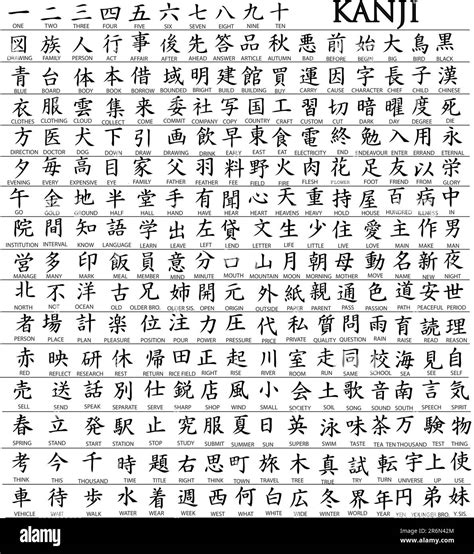 一 二 三 四 五 六 七 八 九 十 KANJI
ONE TWO THREE FOUR FIVE SIX SEVEN EIGHT NINE TEN
図 族 人 行 事 後 先 答 品 秋 悪 前 始 大 鳥 黒
DRAWING FAMILY PERSON ACT AFFAIR AFTER AHEAD ANSWER ARTICLE AUTUMN BAD BEFORE BEGIN BIG BIRD BLACK
青 台 体 本 借 域 明 建 館 買 運 因 字 長 子 漢
BLUE BOARD BODY BOOK BORROW BOUNDS BRIGHT BUILD BUILDING BUY CARRY CAUSE CHARACTER CHIEF CHILD CHINESE
衣 服 雲 集 来 委 社 写 国 工 習 切 暗 曜 度 死
CLOTHES CLOTHING CLOUD COLLECT COME COMMIT COMPANY COPY COUNTRY CRAFT CUSTOM CUT DARK DAY DEGREE DIE
方 医 犬 下 引 画 飲 早 東 食 電 終 勉 入 用 永
DIRECTION DOCTOR DOG DOWN DRAW DRAWING DRINK EARLY EAST EAT ELECTRICITY END ENDEAVOUR ENTER ERRAND ETERNAL
夕 毎 高 目 家 父 羽 料 野 火 肉 花 足 友 以
EVENING EVERY EXPENSIVE EYE FAMILY FATHER FEATHER FEE FIELD FIRE FLESH FLOWER FOOT FRIEND FROM GLORY
午 金 地 半 堂 手 有 聞 心 天 重 持 屋 百 病 中
GO GOLD GROUND HALF HALL HAND HAVE HEAR HEART HEAVEN HEAVY HOLD HOUSE HUNDRED ILLNESS IN
院 間 語 学 出 左 文 生 少 住 愛 主 作 男
INSTITUTION INTERVAL KNOW LANGUAGE LEARN LEAVE LEFT LEND LETTER LIFE LITTLE LIVE LOVE MAIN MAKE MAN
営 多 印 飯 員 意 分 口 山 月 朝 母 動 名 新 夜
MANAGE MANY MARK MEAL MEMBER MIND MINUTE MOUTH MOUNTAIN MOON MORNING MOTHER MOVE NAME NEW NIGHT
北 不 洋 古 兄 姉 開 元 外 紙 親 通 色 道 安 世
NORTH NOT OCEAN OLD OLDER BRO. OLDER SIS. OPEN ORIGIN OUTSIDE PAPER PARENT PASS PASSION PATH PEACE PERIOD
者 場 計 楽 位 注 力 圧 代 私 質 問 雨 育 読 理
PERSON PLACE PLAN PLEASURE POSITION POUR POWER PRESSURE PRICE PRIVATE QUALITY QUESTION RAIN RAISE READ REASON
赤 映 研 休 帰 田 正 起 川 室 走 同 校 海 見 自
RED REFLECT RESEARCH REST RETURN RICE FIELD RIGHT RISE RIVER ROOM RUN SAME SCHOOL SEA SEE SELF
売 送 話 別 仕 鋭 店 風 小 会 土 歌 音 南 言 気
SELL SEND SPEAK SEPARATE SERVE SHARP SHOP SMALL SOCIETY SOIL SONG SOUND SOUTH SPEECH SPIRIT
春 立 発 駅 止 究 服 夏 日 英 泳 味 茶 万 験 物
SPRING STAND START STATION STOP STUDY SUBMIT SUMMER SUN SUPERB SWIM TASTE TEA TEN THOUSAND TEST THING
考 今 千 時 題 右 思 町 旅 木 真 試 転 宇 上 使
THINK THIS THOUSAND TIME TITLE RIGHT THINK TOWN TRAVEL TREE TRUE TRY TURN UNIVERSE UP USE
車 待 歩 水 週 西 何 白 広 冬 世 界 年 円 弟 妹
VEHICLE WAIT WALK WATER WEEK WEST WHAT WHITE WIDE WINTER WORLD YEAR YEN YOUNGER BRO. Y.SIS.
alamy
Image ID: 2R6N42M
www.alamy.com